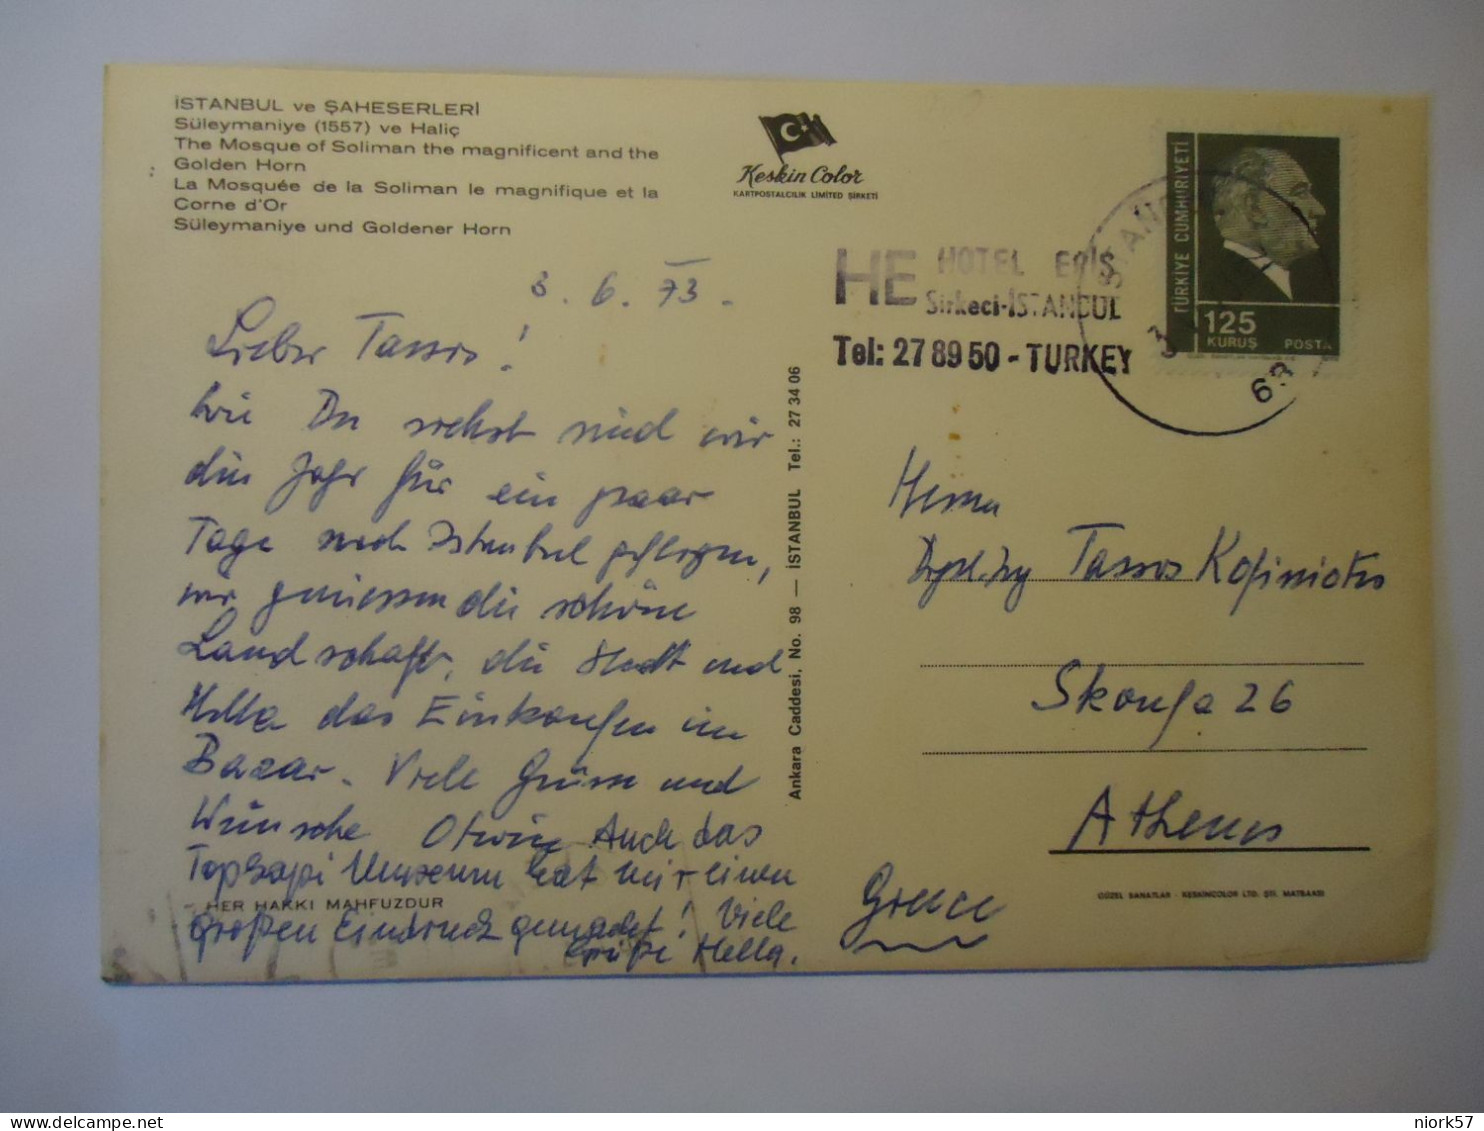 İSTANBUL ve ŞAHESERLERİ
Süleymaniye (1557) ve Haliç
The Mosque of Soliman the magnificent and the
Golden Horn
La Mosquée de la Soliman le magnifique et la
Corne d'Or
Süleymaniye und Goldener Horn
Keskin Color
KARTPOSTALCILIK LIMITED ŞIRKETİ
TÜRKİYE CUMHURİYETİ
125
KURUŞ POSTA
HE HOTEL ERİŞ
Sirkeci-İSTANBUL
Tel: 27 89 50 - TURKEY
3. 6. 73.
Lieber Tassos!
wie Du siehst sind wir
die Jahr für ein paar
Tage nach Istanbul geflogen,
wir geniessen die schöne
Landschaft, die Stadt und
Hella das Einkaufen im
Bazar. Viele Grüsse und
Wünsche Auch das
Topkapi Museum hat mir einen
HER HAKKI MAHFUZDUR
großen Eindruck gemacht! Viele
Grüße Hella.
Ankara Caddesi, No. 98 — İSTANBUL Tel.: 27 34 06
Herrn
Tassos
Skoufa 26
Athens
Greece
GÜZEL SANATLAR - KESKINCOLOR LTD. ŞTİ. MATBAASI
niork57